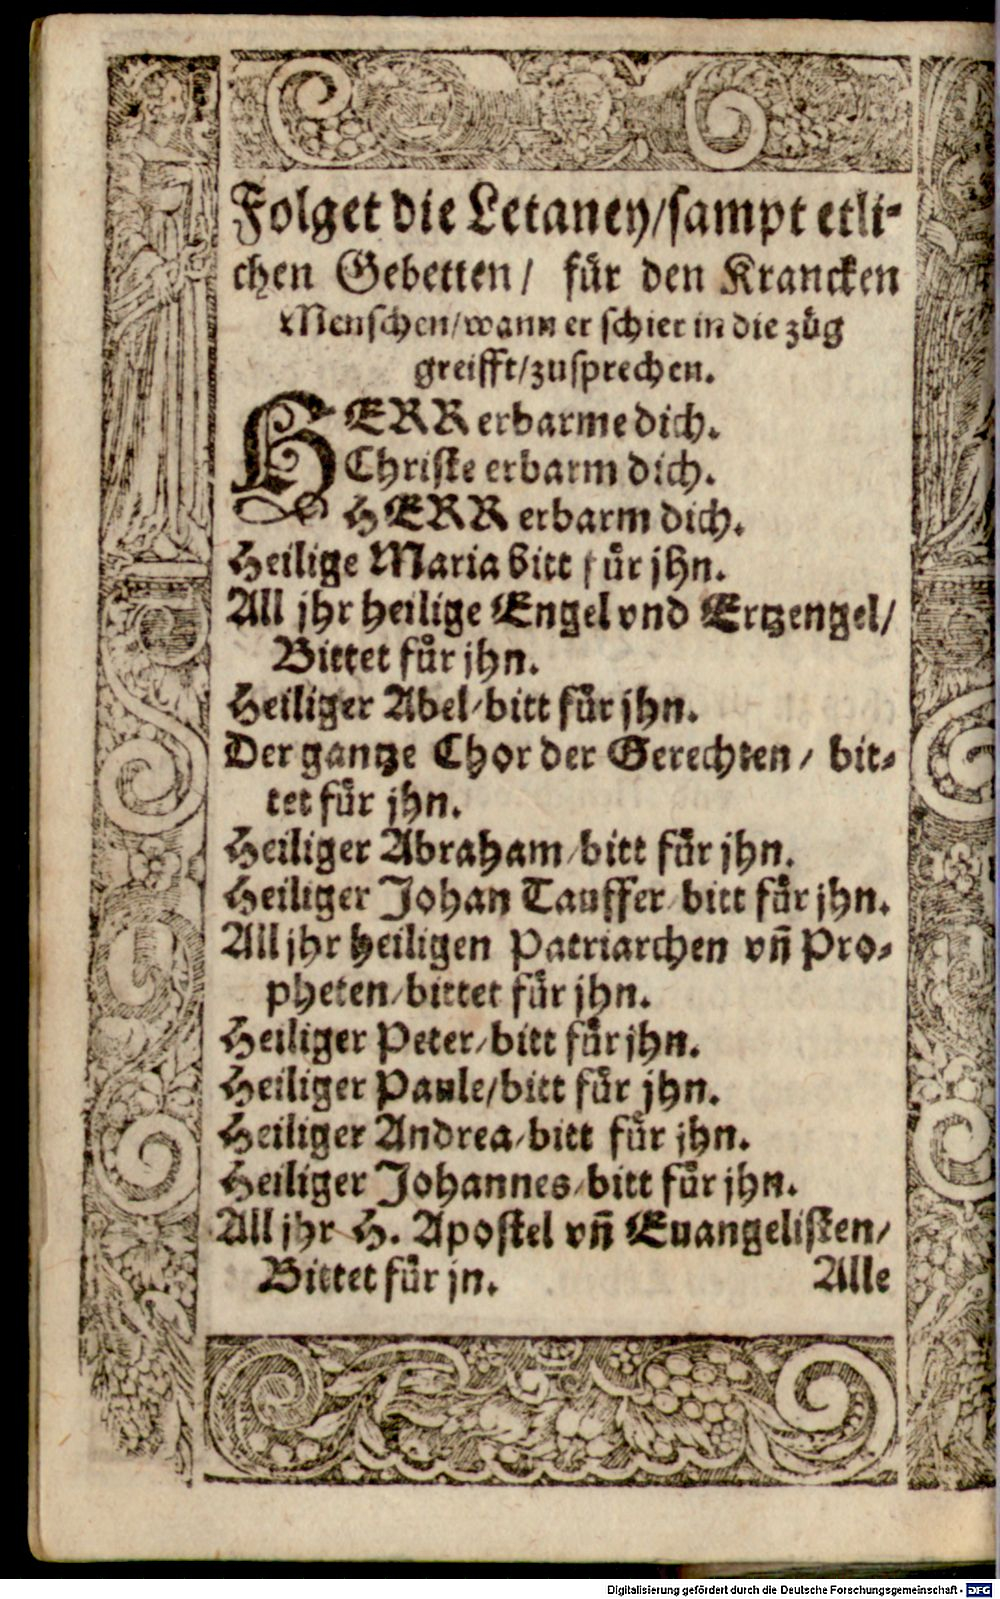 Folget die Letaney/sampt etli-
chen Gebetten/ für den Krancken
Menschen/wann er schier in die züg
greifft/zusprechen.
HERR erbarme dich.
Christe erbarm dich.
HERR erbarm dich.
Heilige Maria bitt für jhn.
All jhr heilige Engel vnd Ertzengel/
Bittet für jhn.
Heiliger Abel/bitt für jhn.
Der gantze Chor der Gerechten/ bit-
tet für jhn.
Heiliger Abraham/bitt für jhn.
Heiliger Johan Tauffer/bitt für jhn.
All jhr heiligen Patriarchen vñ Pro-
pheten/bittet für jhn.
Heiliger Peter/bitt für jhn.
Heiliger Paule/bitt für jhn.
Heiliger Andrea/bitt für jhn.
Heiliger Johannes/bitt für jhn.
All jhr H. Apostel vñ Euangelisten/
Bittet für jn. Alle
Digitalisierung gefördert durch die Deutsche Forschungsgemeinschaft - DFG